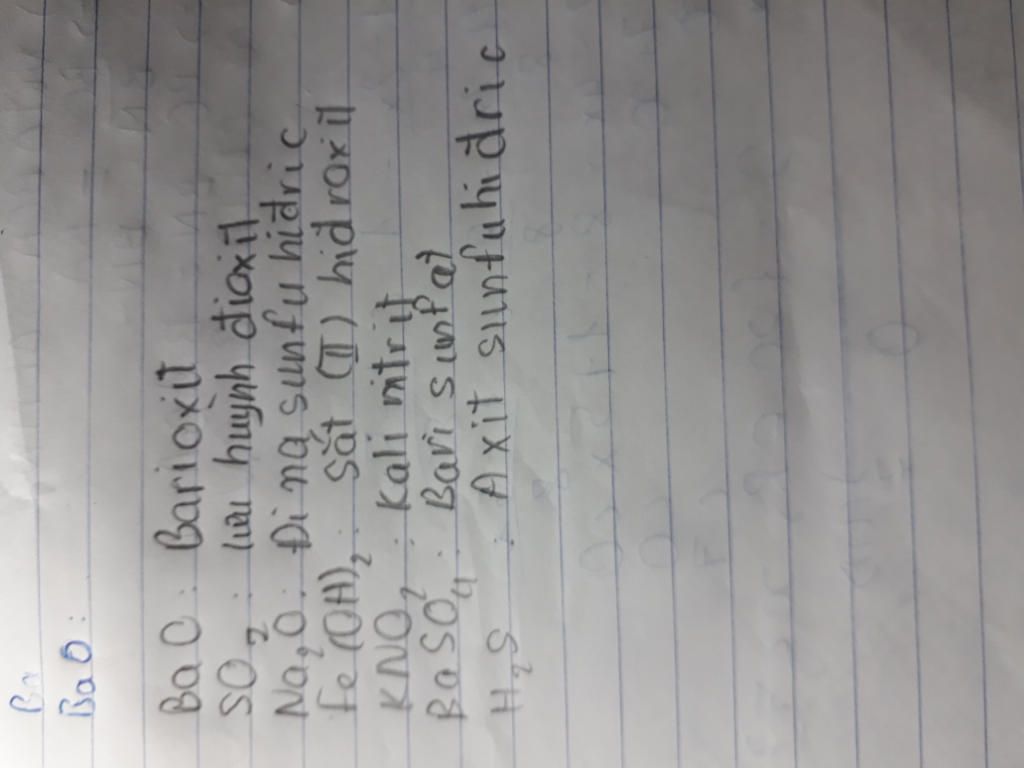 Ba
BaO:
BaO: Barioxit
SO2: lưu huỳnh đioxit
Na2O: Đi na sunfu hiđric
Fe(OH)2: Sắt (II) hidroxit
KNO2: Kali nitrit
BaSO4: Bari sunfat
H2S: Axit sunfuhiđric